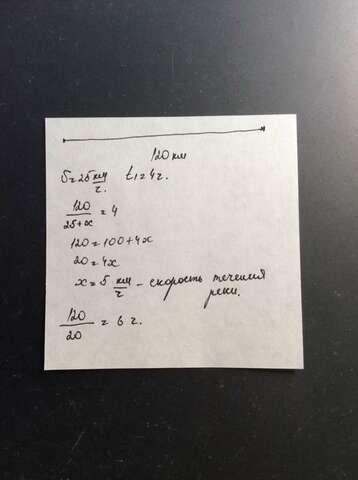 120 км
V=25 км/ч. t₁=4ч.
120/(25+x) = 4
120=100+4x
20=4x
x=5 км/ч - скорость течения
реки.
120/20 = 6 ч.